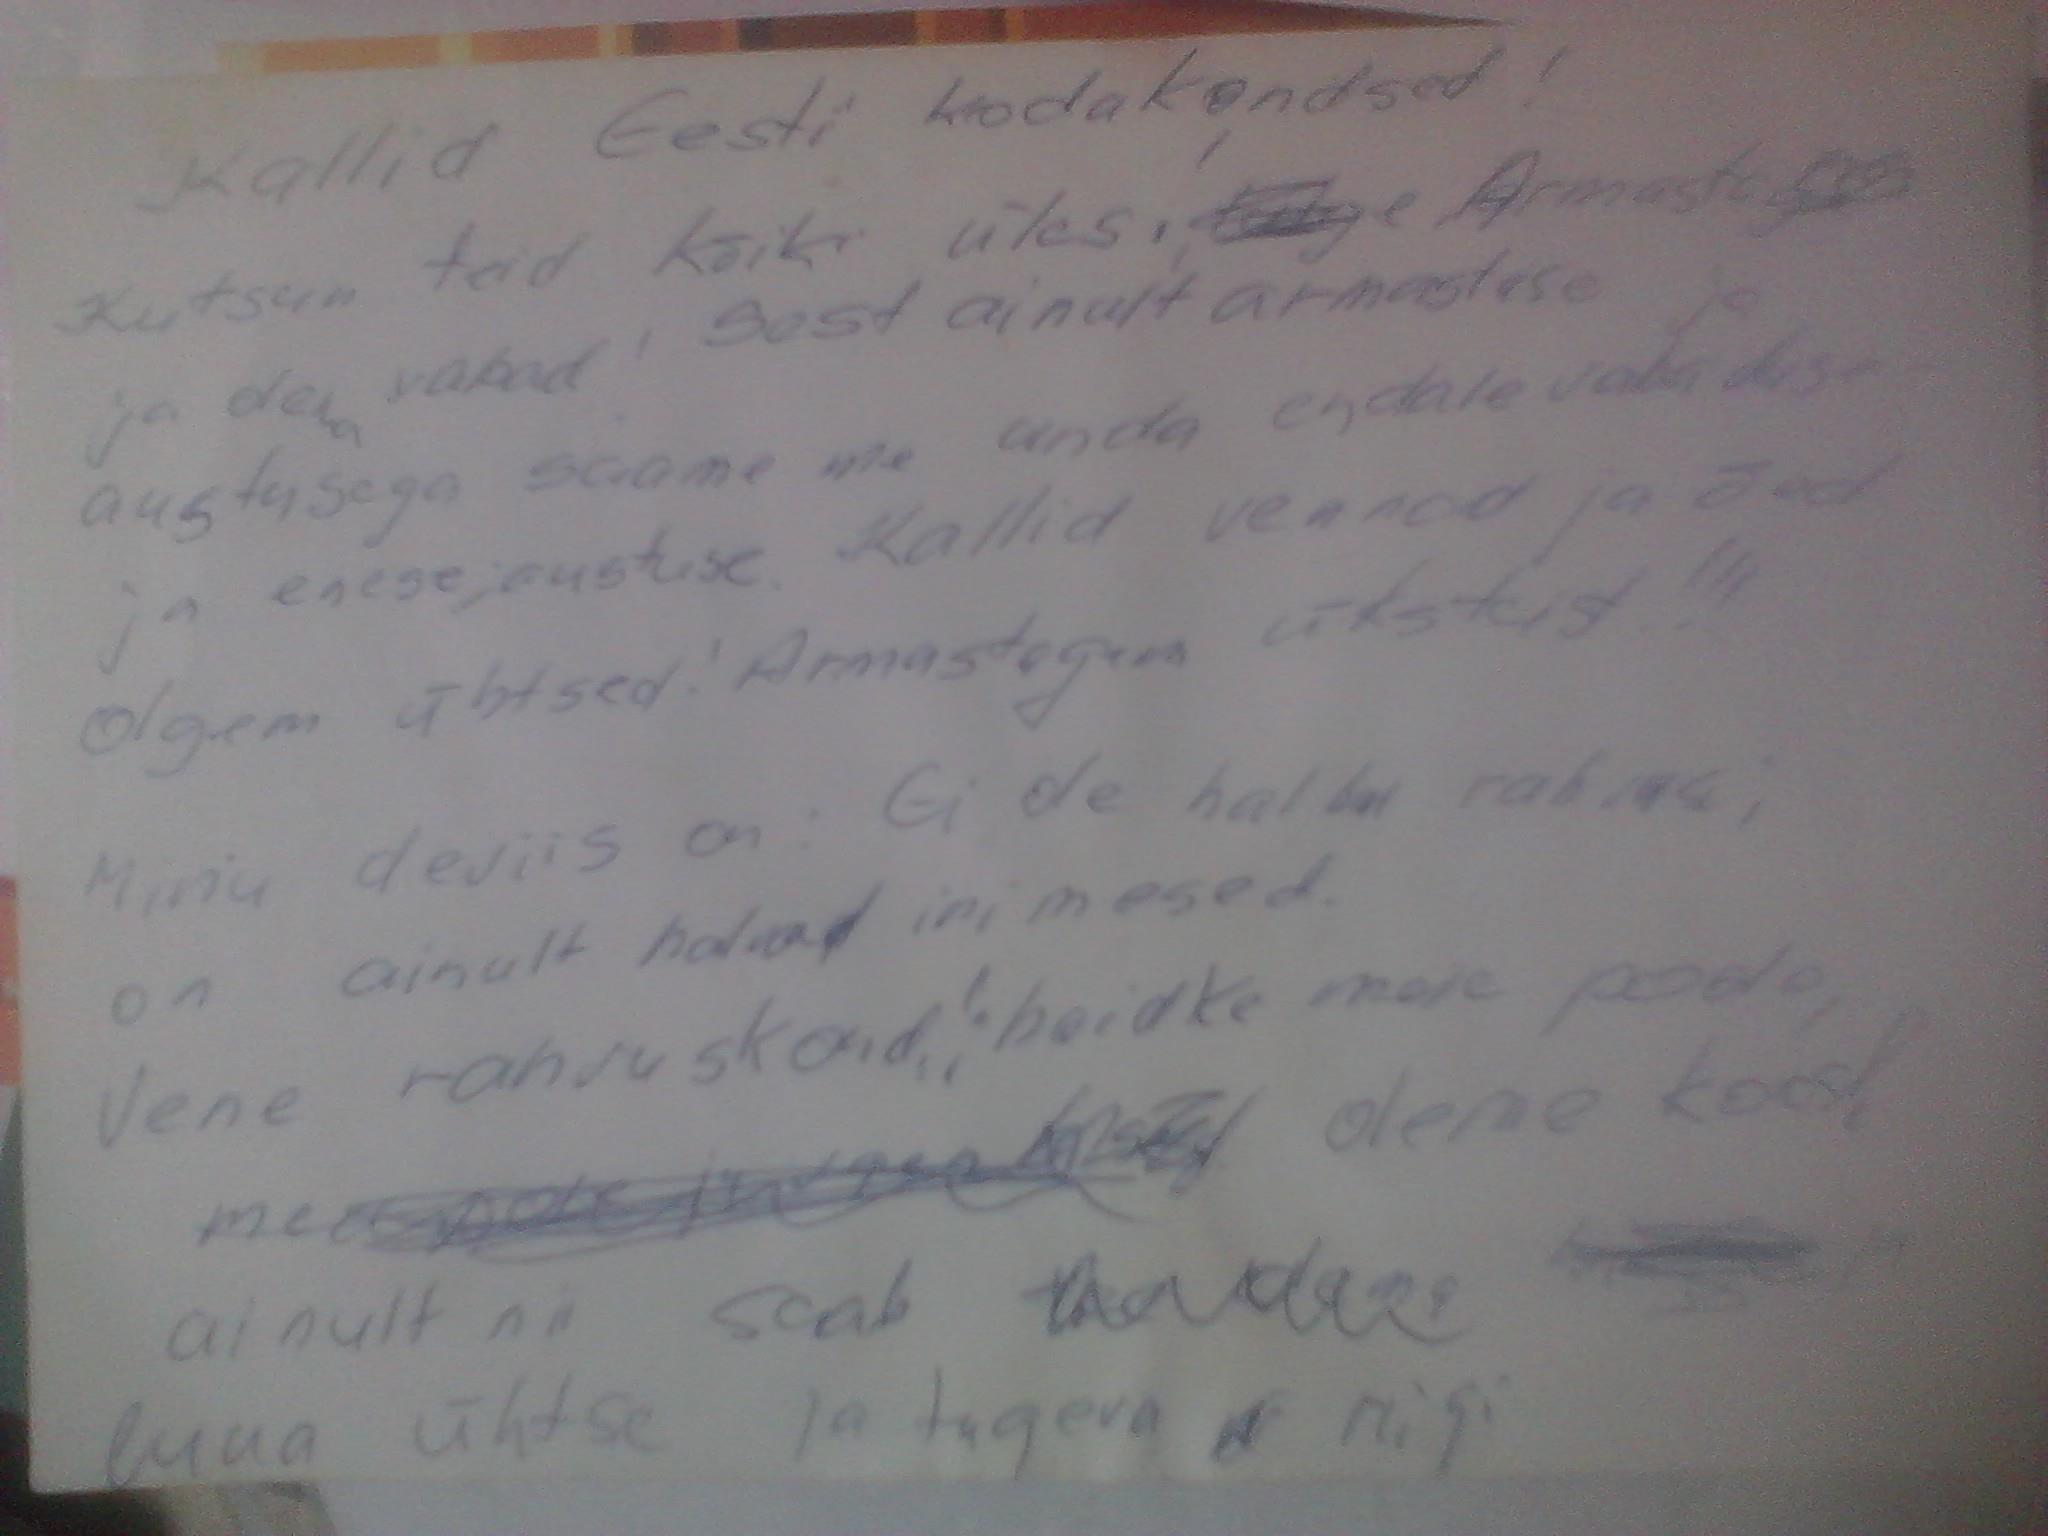 Kallid Eesti kodakondsed!
Kutsun teid kõiki üles, Armasta
ja olema vabad! Sest ainult armastuse ja
austusega saame me anda endale vabaduse
ja enese,austuse. Kallid vennad ja õed
Olgem ühtsed! Armastagem üksteist!!!
Minu deviis on: Ei ole halbu rahvusi,
on ainult halvad inimesed.
Vene rahvuskond,! hoidke meie poole,
me oleme koos!
ainult nii saab
luua ühtse ja tugeva riigi